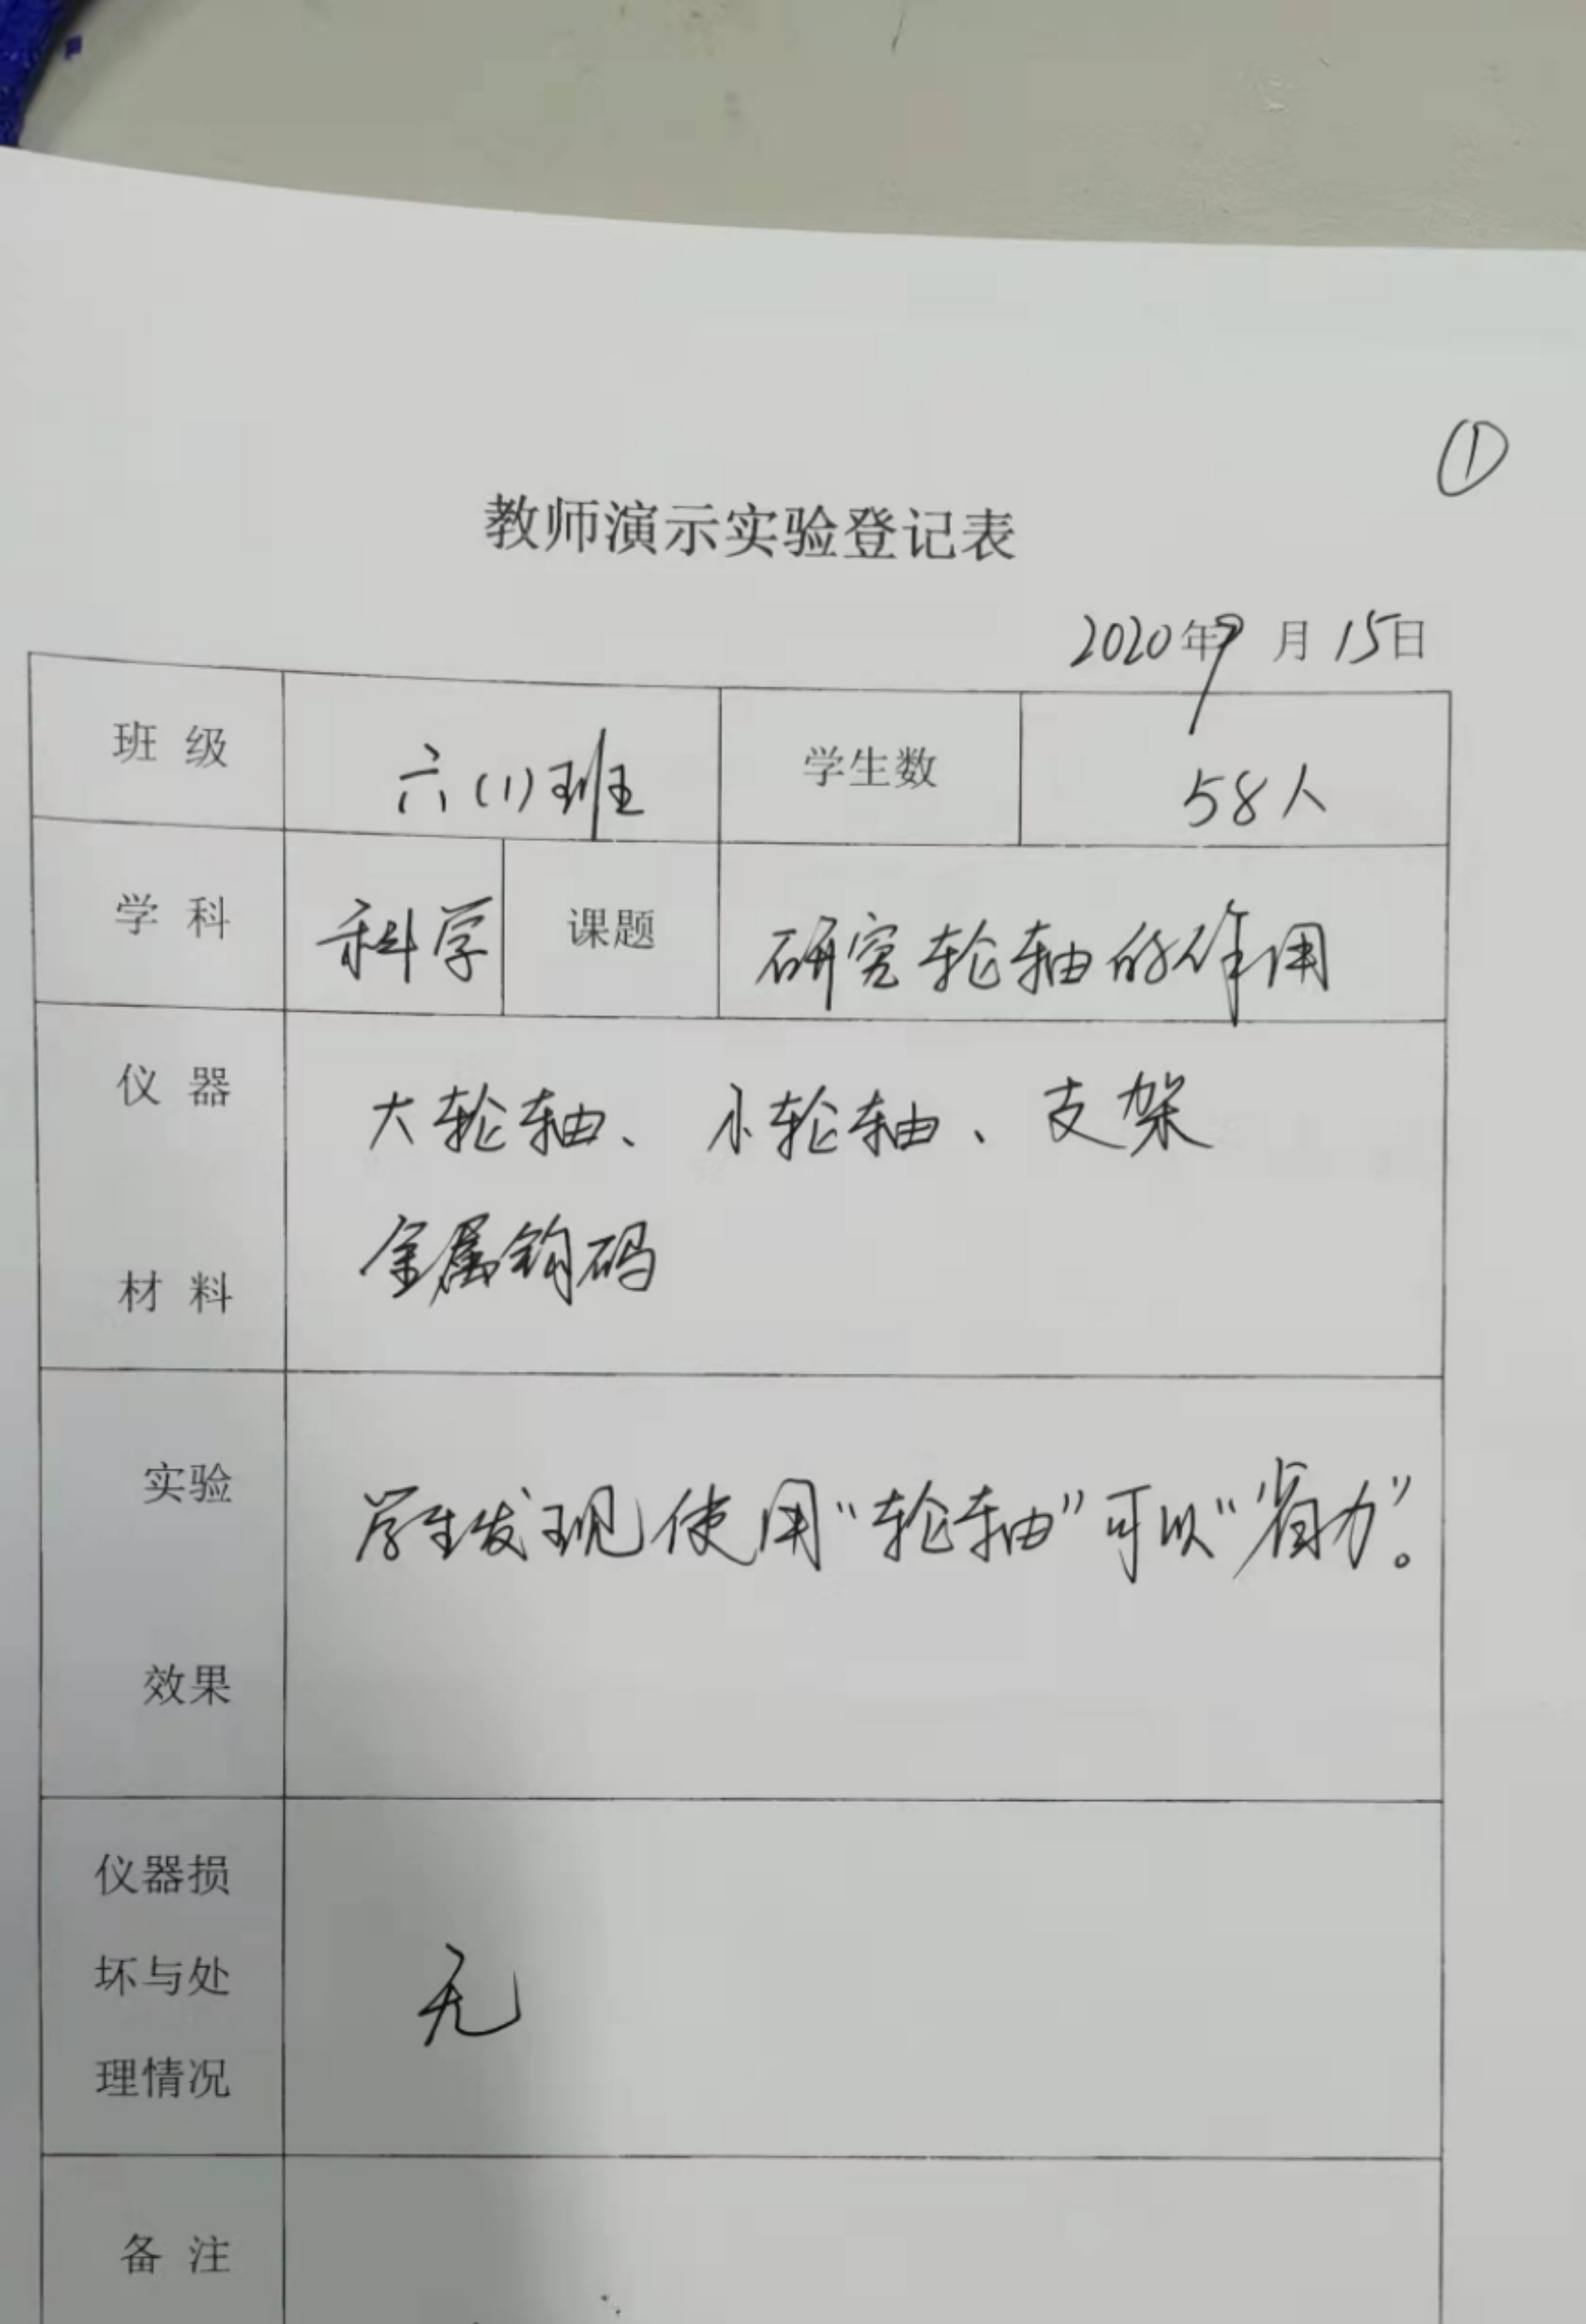 ①
教师演示实验登记表
2020年9月15日
班级 六(1)班 学生数 58人
学科 科学 课题 研究轮轴的作用
仪器 大轮轴、小轮轴、支架
金属钩码
材料
实验 学生发现使用“轮轴”可以“省力”。
效果
仪器损
坏与处 无
理情况
备注